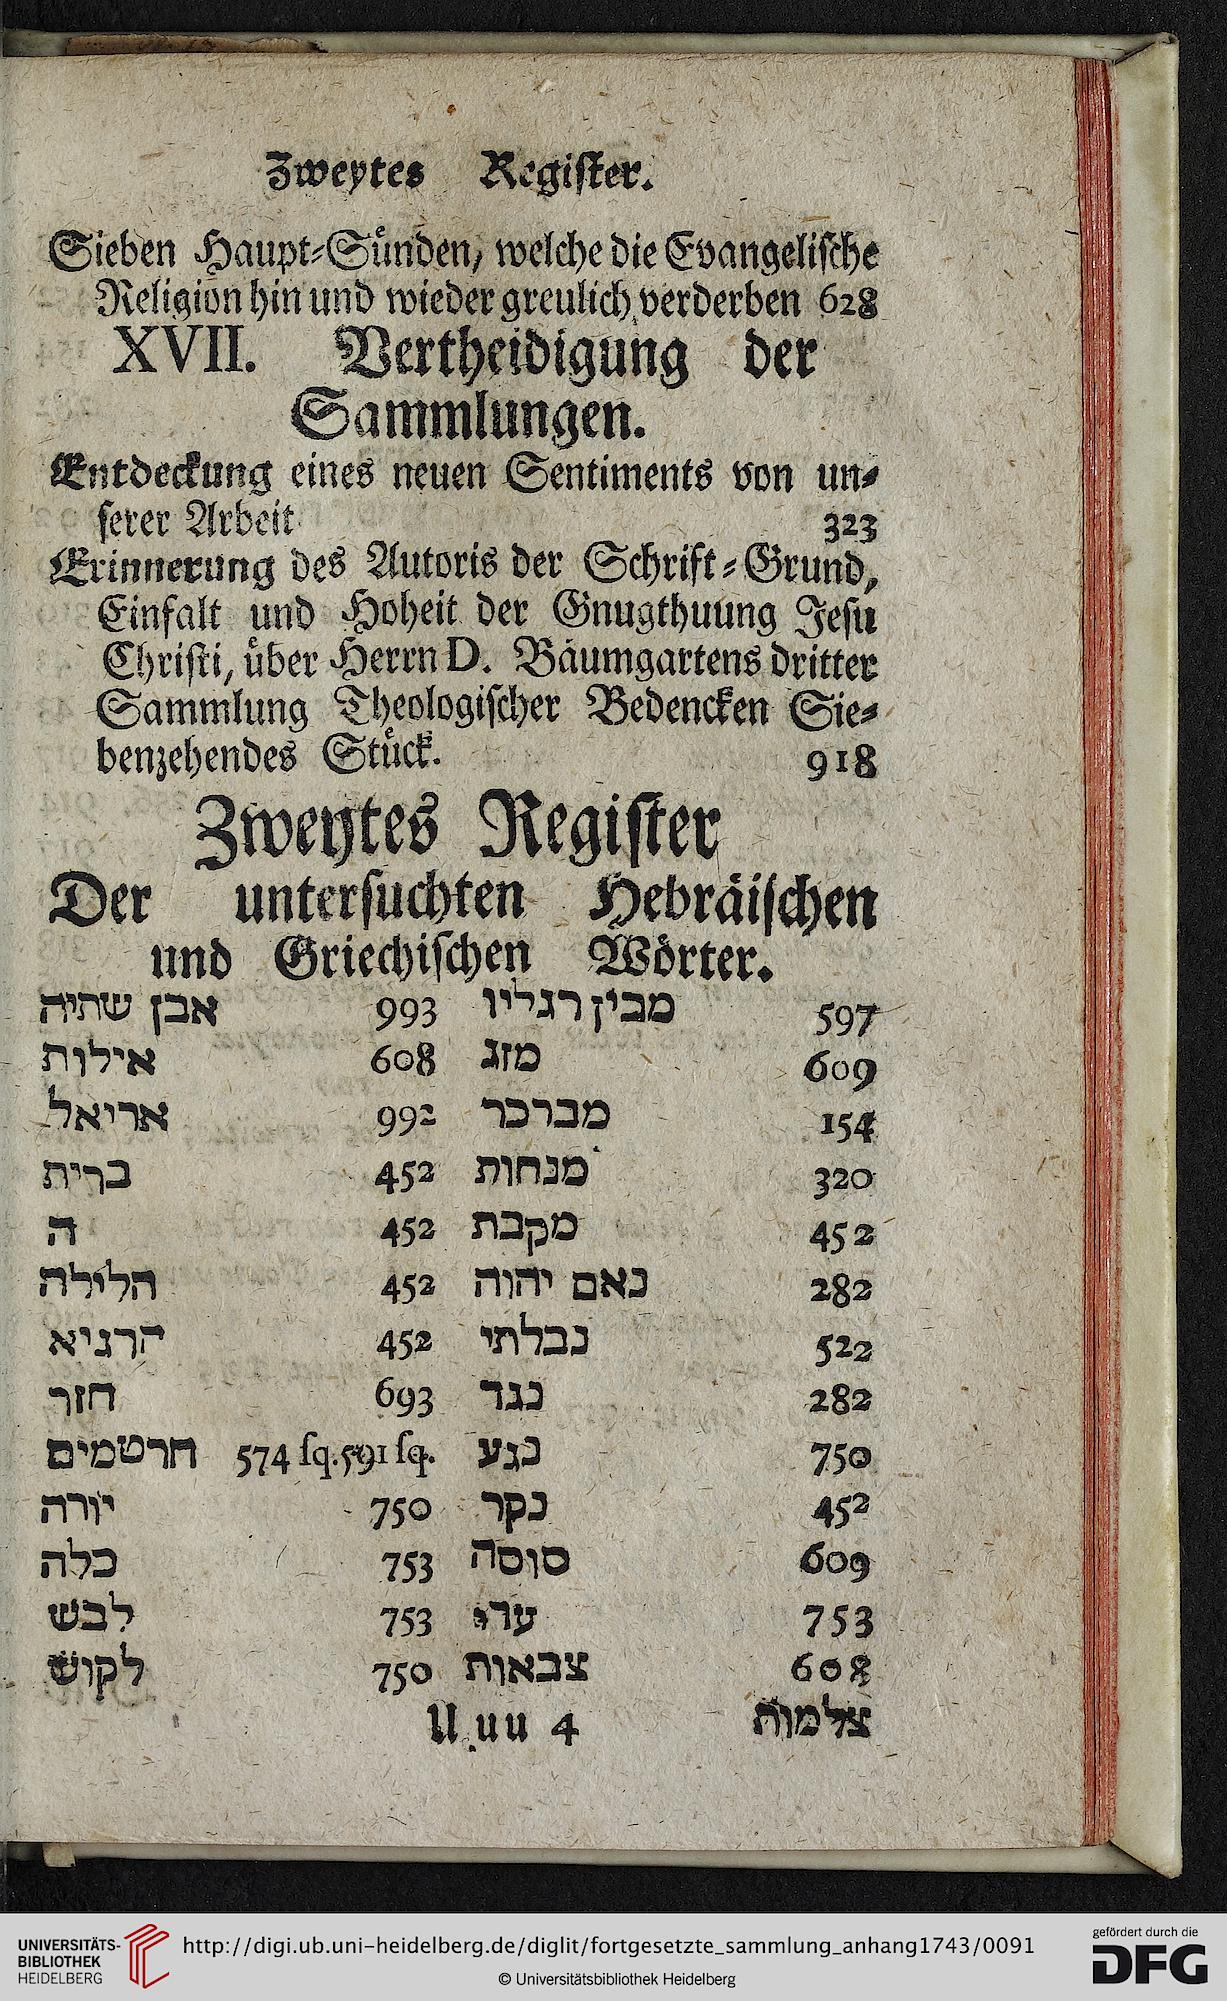 Zweytes Register.
Sieben Haupt-Sünden, welche die Evangelische
Religion hin und wieder greulich verderben 628
XVII. Vertheidigung der
Sammlungen.
Entdeckung eines neuen Sentiments von un-
serer Arbeit 323
Erinnerung des Autoris der Schrift-Grund,
Einfalt und Hoheit der Gnugthuung Jesu
Christi, über Herrn D. Bäumgartens dritter
Sammlung Theologischer Bedencken Sie-
benzehendes Stück. 918
Zweytes Register
Der untersuchten Hebräischen
und Griechischen Wörter.
אבן שתיה 993
אילות 608
אריאל 992
ברית 452
ה 452
הלילה 452
הרגיא 452
חזר 693
חרטמים 574 sq. 591 sq.
יורה 750
כלה 753
לבש 753
לקוש 750
מבין רגליו 597
מזג 609
מברכר 154
מנחות 320
מקבת 452
נאם יהוה 282
נבלתי 522
נגד 282
נגע 750
נקר 452
סוסה 609
753
צבאות 608
Uuu 4 צלמות
UNIVERSITÄTS-
BIBLIOTHEK
HEIDELBERG
http://digi.ub.uni-heidelberg.de/diglit/fortgesetzte_sammlung_anhang1743/0091
© Universitätsbibliothek Heidelberg
gefördert durch die
DFG